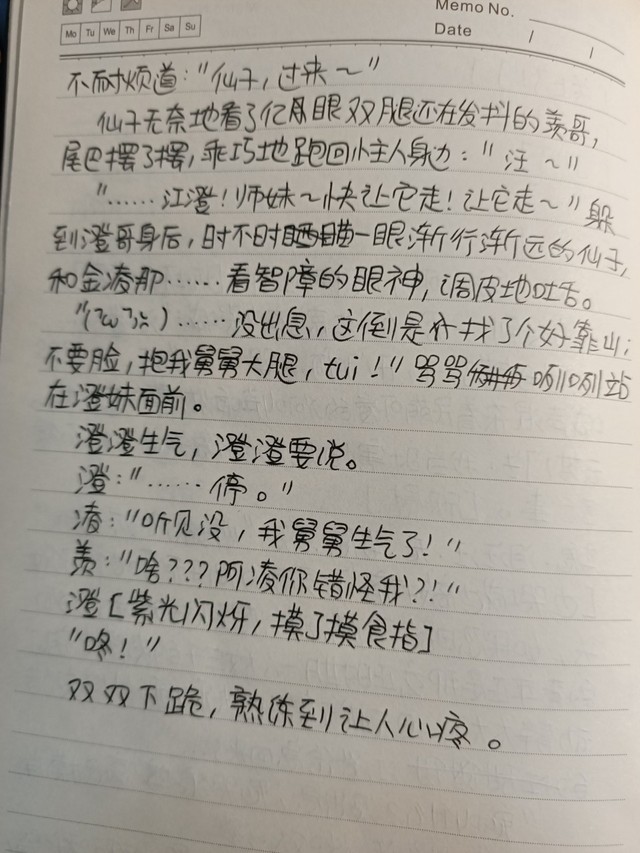 Memo No.
Mo Tu We Th Fr Sa Su
Date / /
不耐烦道：“仙子，过来～”
仙子无奈地看了亿眼双腿还在发抖的羡哥，
尾巴摆了摆，乖巧地跑回小主人身边：“汪～”
“……江澄！师妹～快让它走！让它走～”躲
到澄哥身后，时不时瞄一眼渐行渐远的仙子，
和金凌那……看智障的眼神，调皮地吐舌。
……没出息，这倒是找了个好靠山；
不要脸，抱我舅舅大腿，tui！”骂骂咧咧站
在澄妹面前。
澄澄生气，澄澄要说。
澄：“……停。”
凌：“听见没，我舅舅生气了！”
羡：“啥？？？阿凌你错怪我？！”
澄[紫光闪烁，摸了摸食指]
“咚！”
双双下跪，熟练到让人心疼。